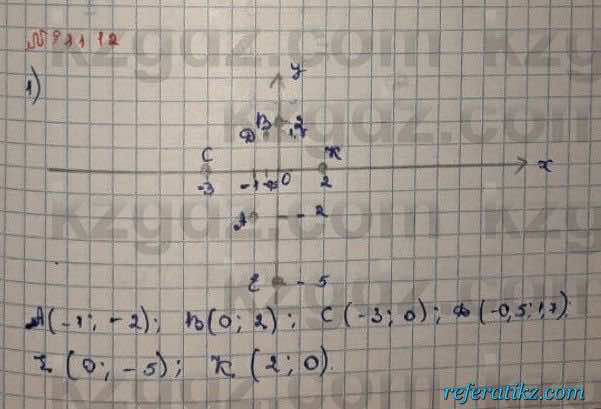 1)
y
B 2
D 1,7
C K
x
-3 -1 0 2
A - 2
E - 5
A(-1; -2); B(0; 2); C(-3; 0); D(-0,5; 1,7)
E (0; -5); K (2; 0).
kzgdz.com
referatikz.com